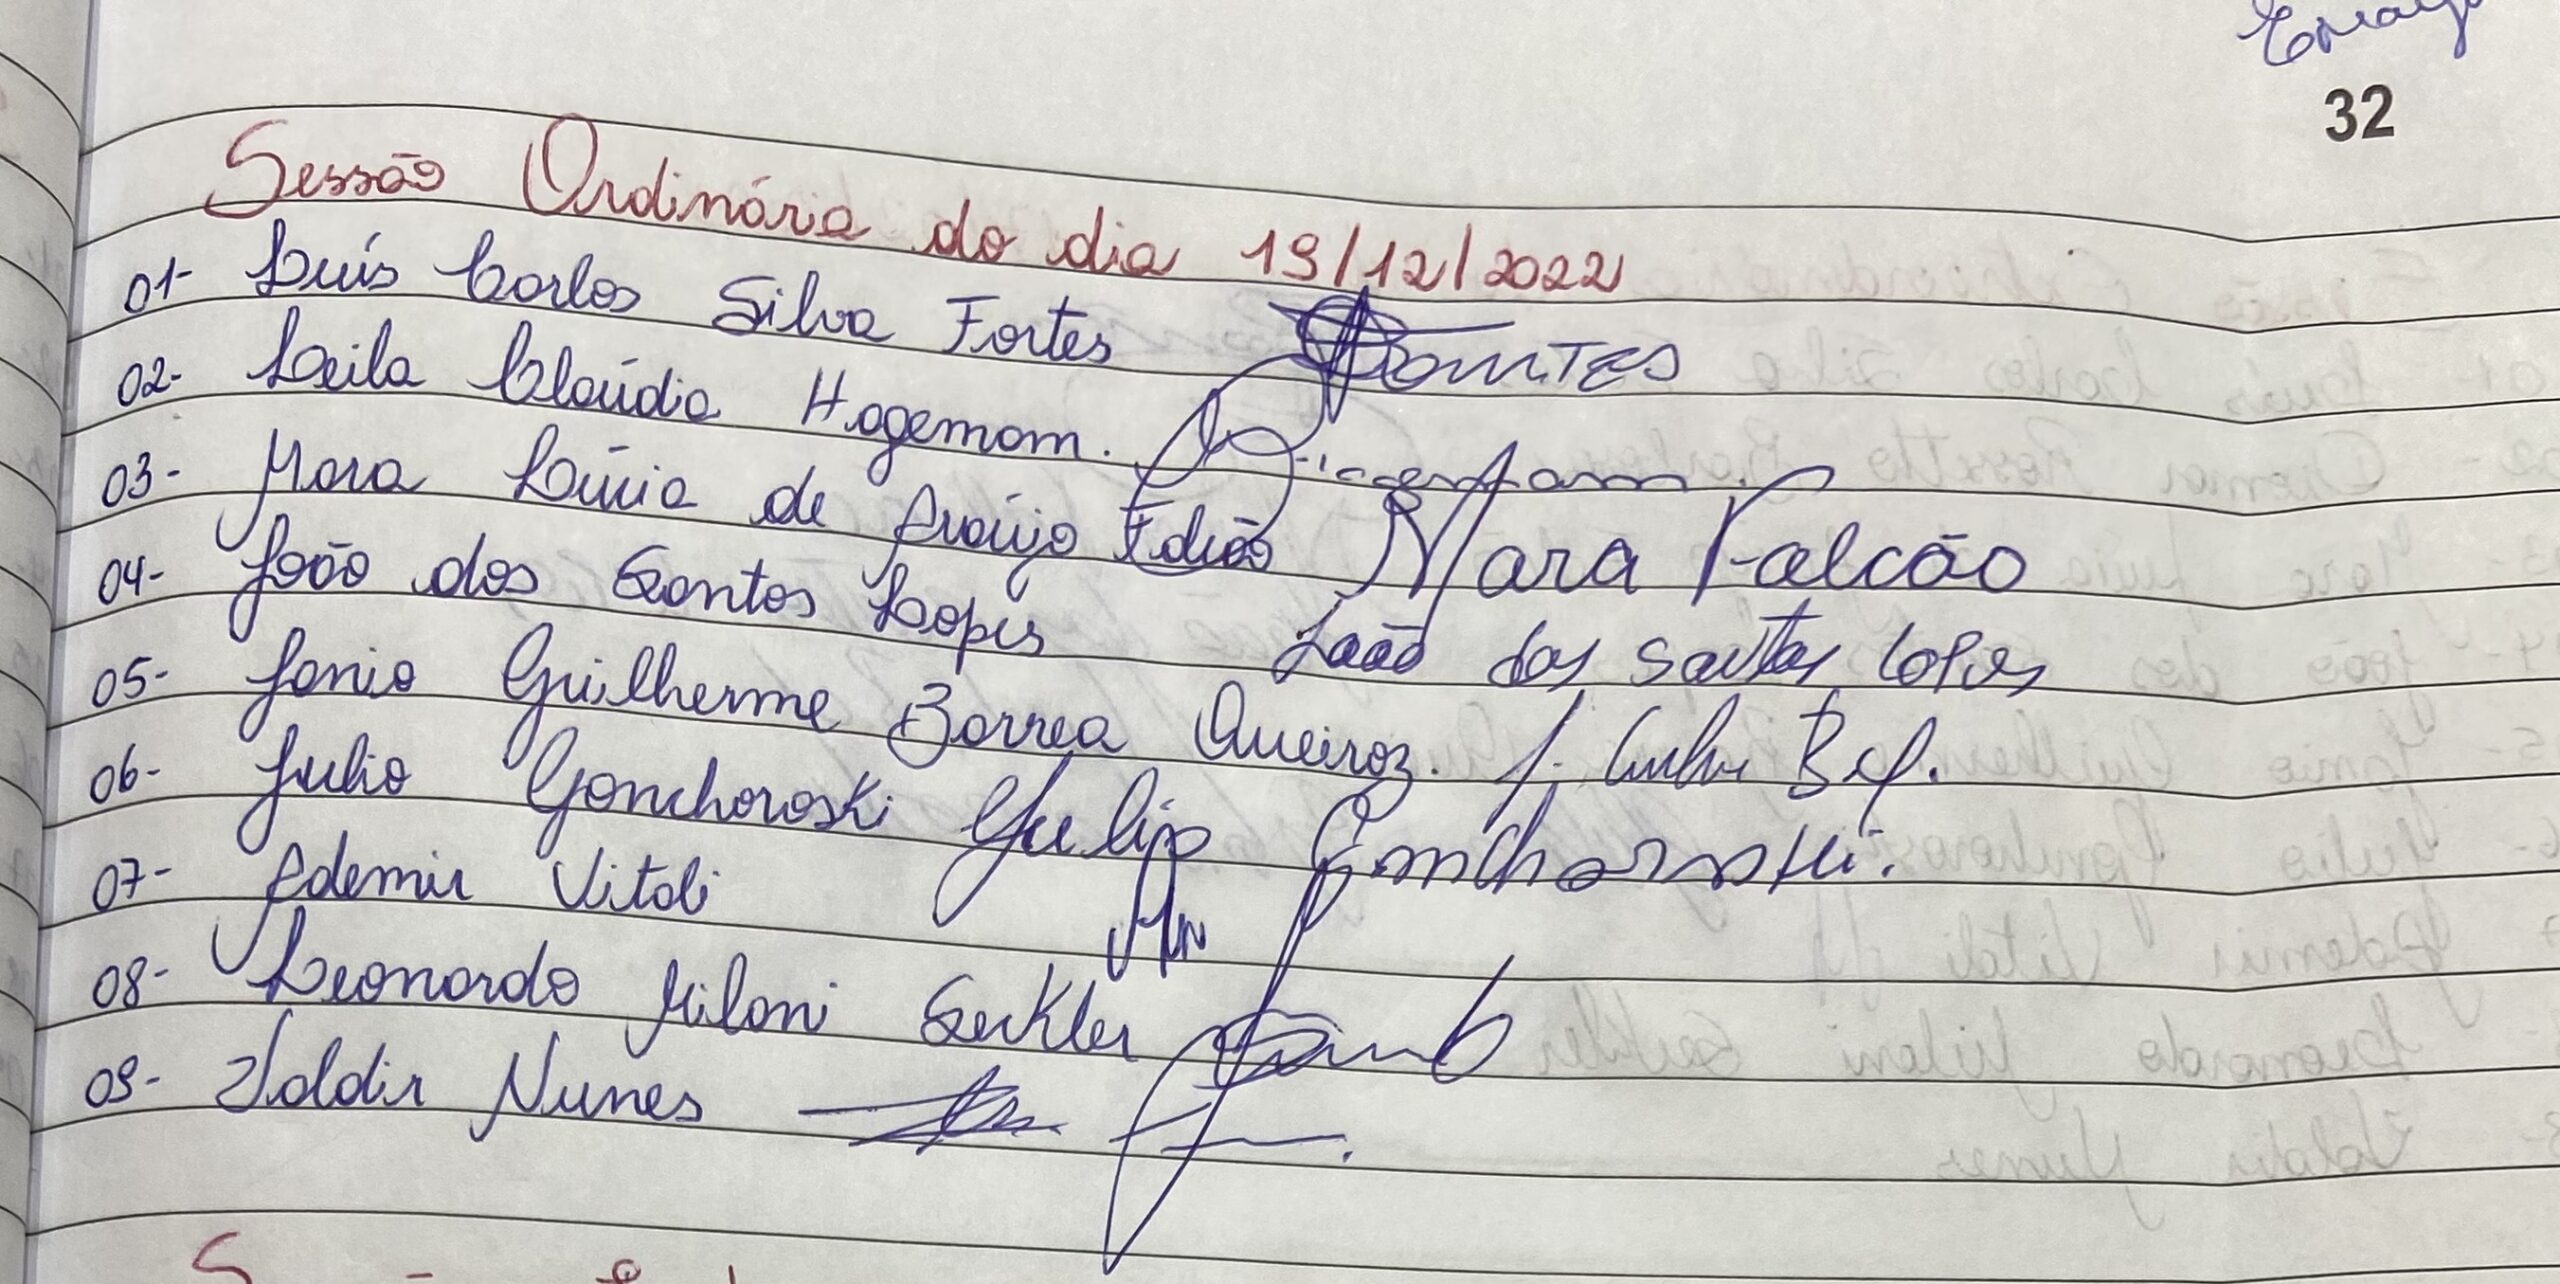 32
Sessão Ordinária do dia 19/12/2022
01- Luís Carlos Silva Fortes Fortes
02- Leila Claúdia Hagemam.
03- Mara Lúcia de Araújo Falcão Mara Falcão
04- João dos Santos Lopes João dos Santos Lopes
05- Janio Guilherme Borrea Queiroz.
06- Julio Gonchoroski Julio Gonchoroski.
07- Ademir Vitali
08- Leonardo Milani Seckler
09- Valdir Nunes